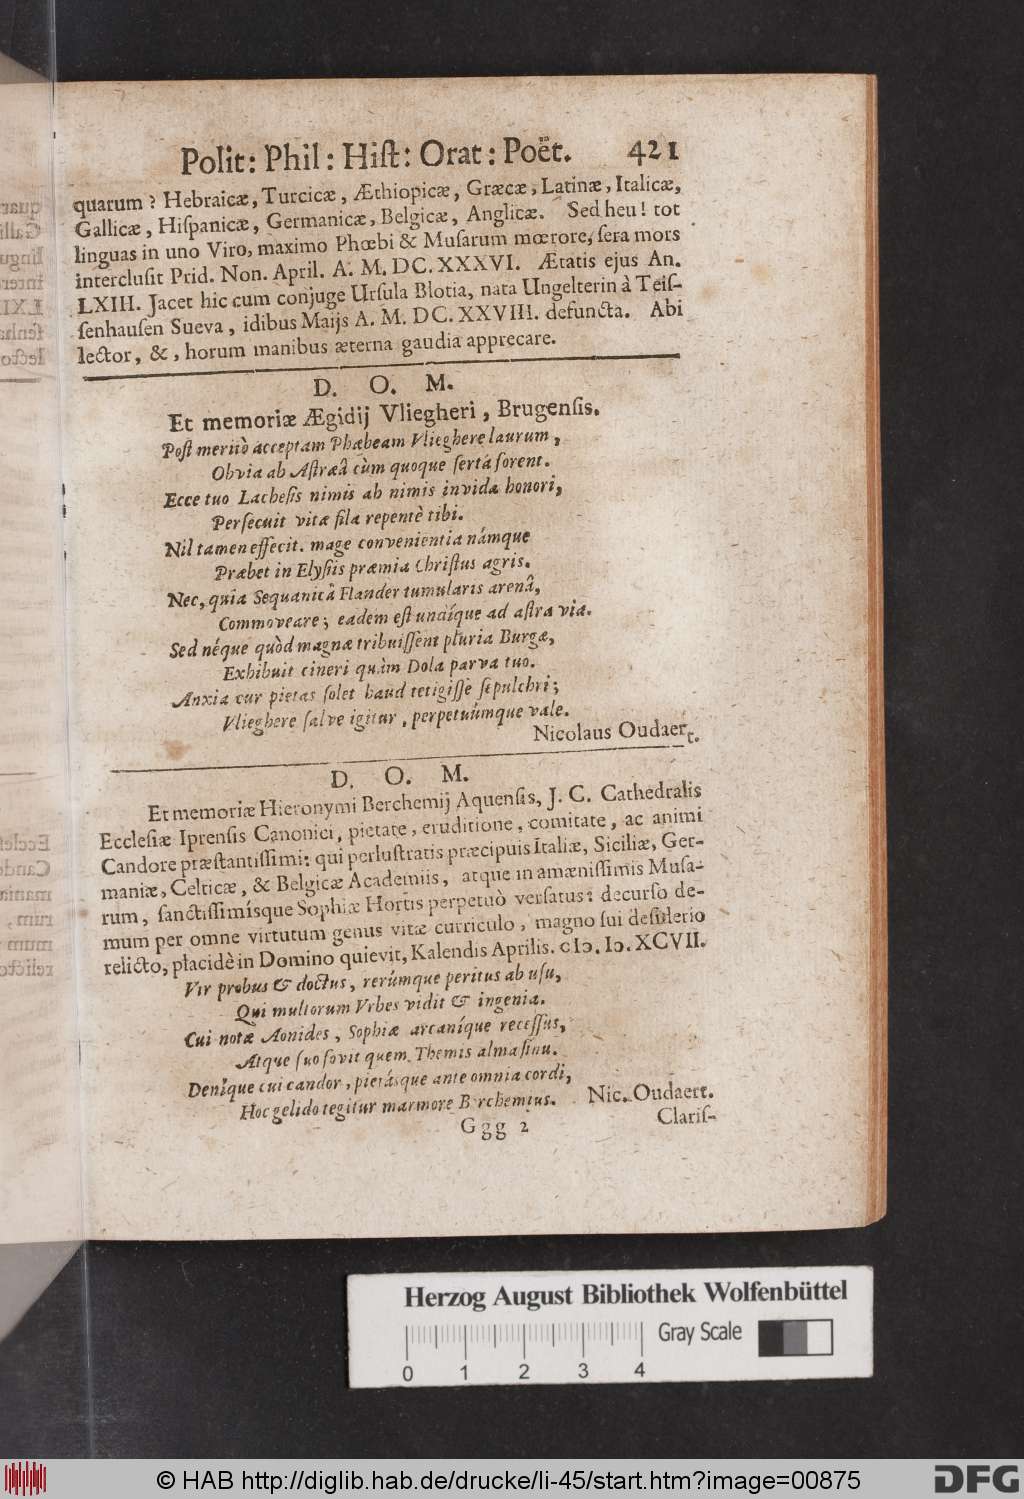 Polit: Phil: Hiſt: Orat: Poët. 421
quarum? Hebraicæ, Turcicæ, Æthiopicæ, Græcæ, Latinæ, Italicæ,
Gallicæ, Hiſpanicæ, Germanicæ, Belgicæ, Anglicæ. Sed heu! tot
linguas in uno Viro, maximo Phœbi & Muſarum mœrore, ſera mors
interclusit Prid. Non. April. A. M. DC. XXXVI. Ætatis ejus An.
LXIII. Jacet hic cum conjuge Urſula Blotia, nata Ungelterin à Teiſ-
ſenhauſen Sueva, idibus Maijs A. M. DC. XXVIII. defuncta. Abi
lector, &, horum manibus æterna gaudia apprecare.
D. O. M.
Et memoriæ Ægidij Vliegheri, Brugenſis.
Poſt meritò acceptam Phæbeam Vlieghere laurum,
Obvia ab Aſtræâ cùm quoque ſerta forent.
Ecce tuo Lacheſis nimis ah nimis invida honori,
Perſecuit vitæ fila repentè tibi.
Nil tamen effecit. mage convenientia námque
Præbet in Elyſiis præmia Chriſtus agris.
Nec, quia Sequanicâ Flander tumularis arenâ,
Commoveare; eadem eſt undíque ad aſtra via.
Sed néque quòd magnæ tribuiſſent pluria Burgæ,
Exhibuit cineri quàm Dola parva tuo.
Anxia cur pietas ſolet haud tetigiſſe ſepulchri;
Vlieghere ſalve igitur, perpetuúmque vale.
Nicolaus Oudaert.
D. O. M.
Et memoriæ Hieronymi Berchemij Aquenſis, J. C. Cathedralis
Eccleſiæ Iprenſis Canonici, pietate, eruditione, comitate, ac animi
Candore præſtantiſſimi: qui perluſtratis præcipuis Italiæ, Siciliæ, Ger-
maniæ, Celticæ, & Belgicæ Academiis, atque in amæniſſimis Muſa-
rum, ſanctiſſimíſque Sophiæ Hortis perpetuò verſatus: decurſo de-
mum per omne virtutum genus vitæ curriculo, magno ſui deſiderio
relicto, placidè in Domino quievit, Kalendis Aprilis. cIↄ. Iↄ. XCVII.
Vir probus & doctus, rerúmque peritus ab uſu,
Qui multorum Vrbes vidit & ingenia.
Cui notæ Aonides, Sophiæ arcaníque receſſus,
Atque ſuo fovit quem Themis alma ſinu.
Deníque cui candor, pietáſque ante omnia cordi,
Hoc gelido tegitur marmore Berchemius. Nic. Oudaert.
Ggg 2 Clariſ-
Herzog August Bibliothek Wolfenbüttel
Gray Scale
0 1 2 3 4
© HAB http://diglib.hab.de/drucke/li-45/start.htm?image=00875
DFG